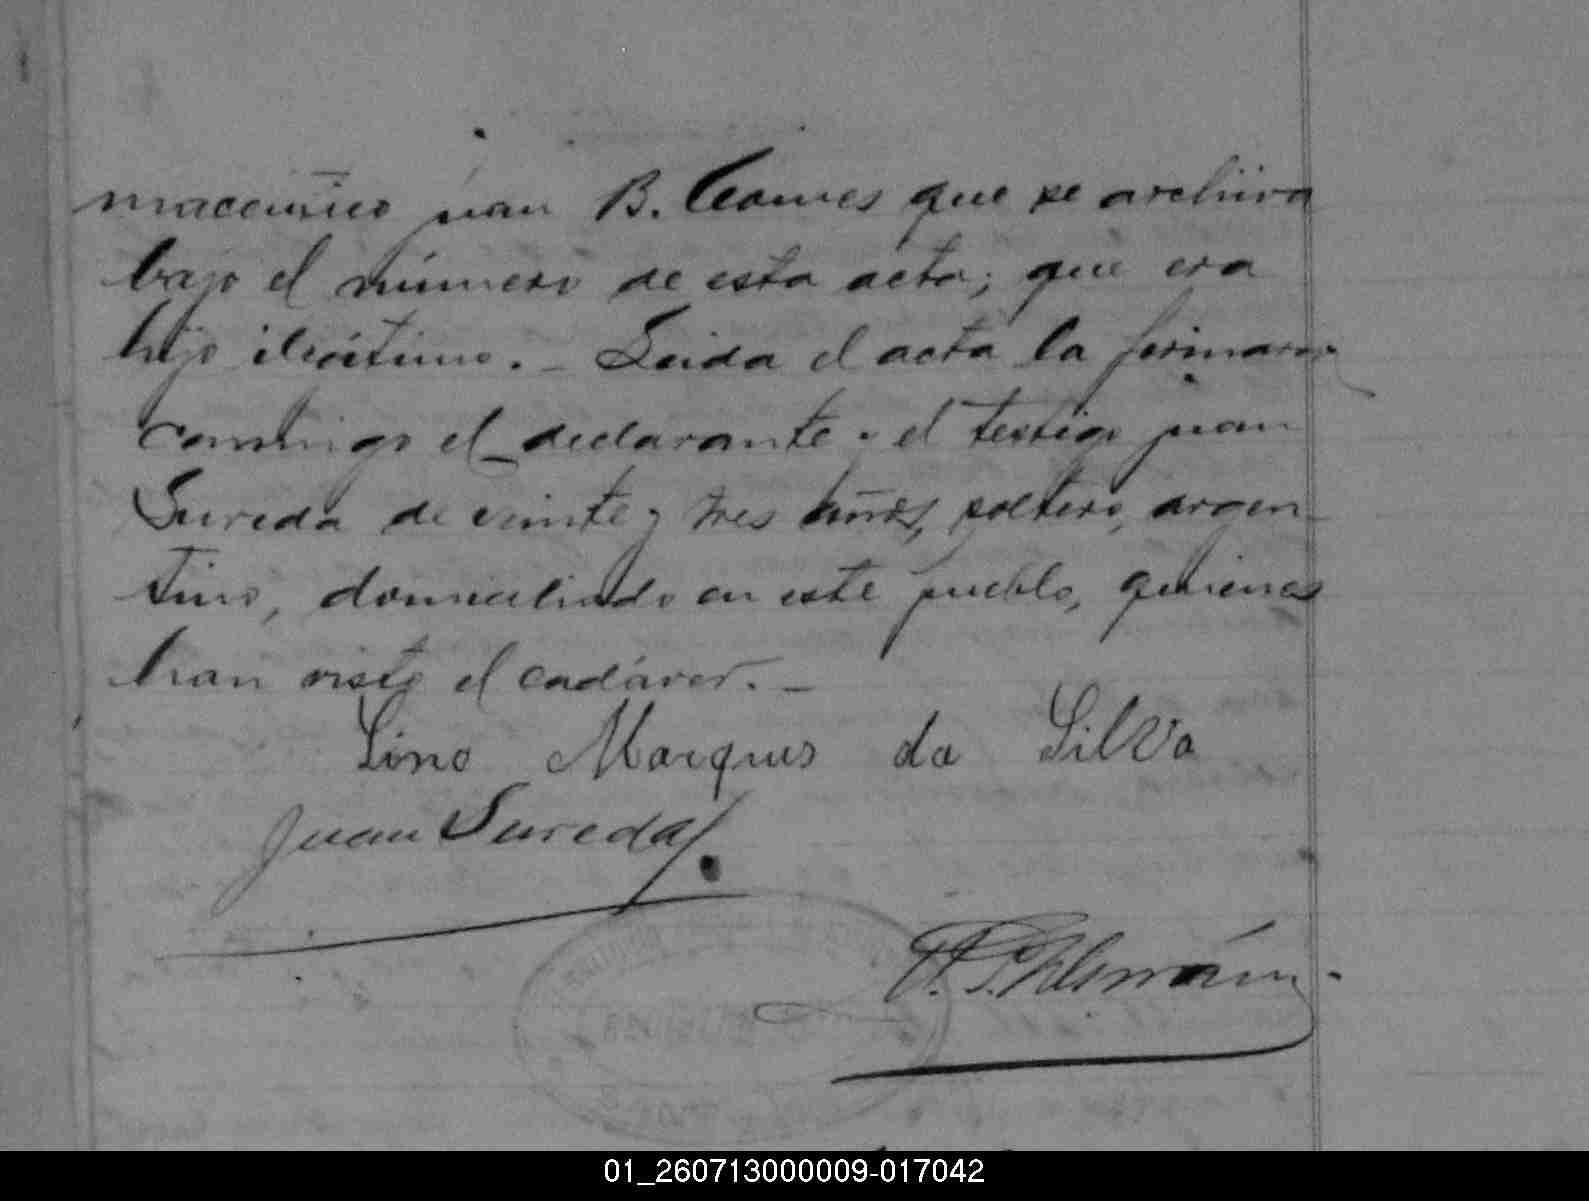 macéutico juan B. Comes que se archiva
bajo el número de esta acta; que era
hijo ilejítimo. - Leida el acta la firmaron
conmigo el declarante y el testigo juan
Sureda de veinte y tres años, soltero, argen-
tino, domiciliado en este pueblo, quienes
han visto el cadáver. -
Lino Marques da Silva
Juan Sureda
01_260713000009-017042